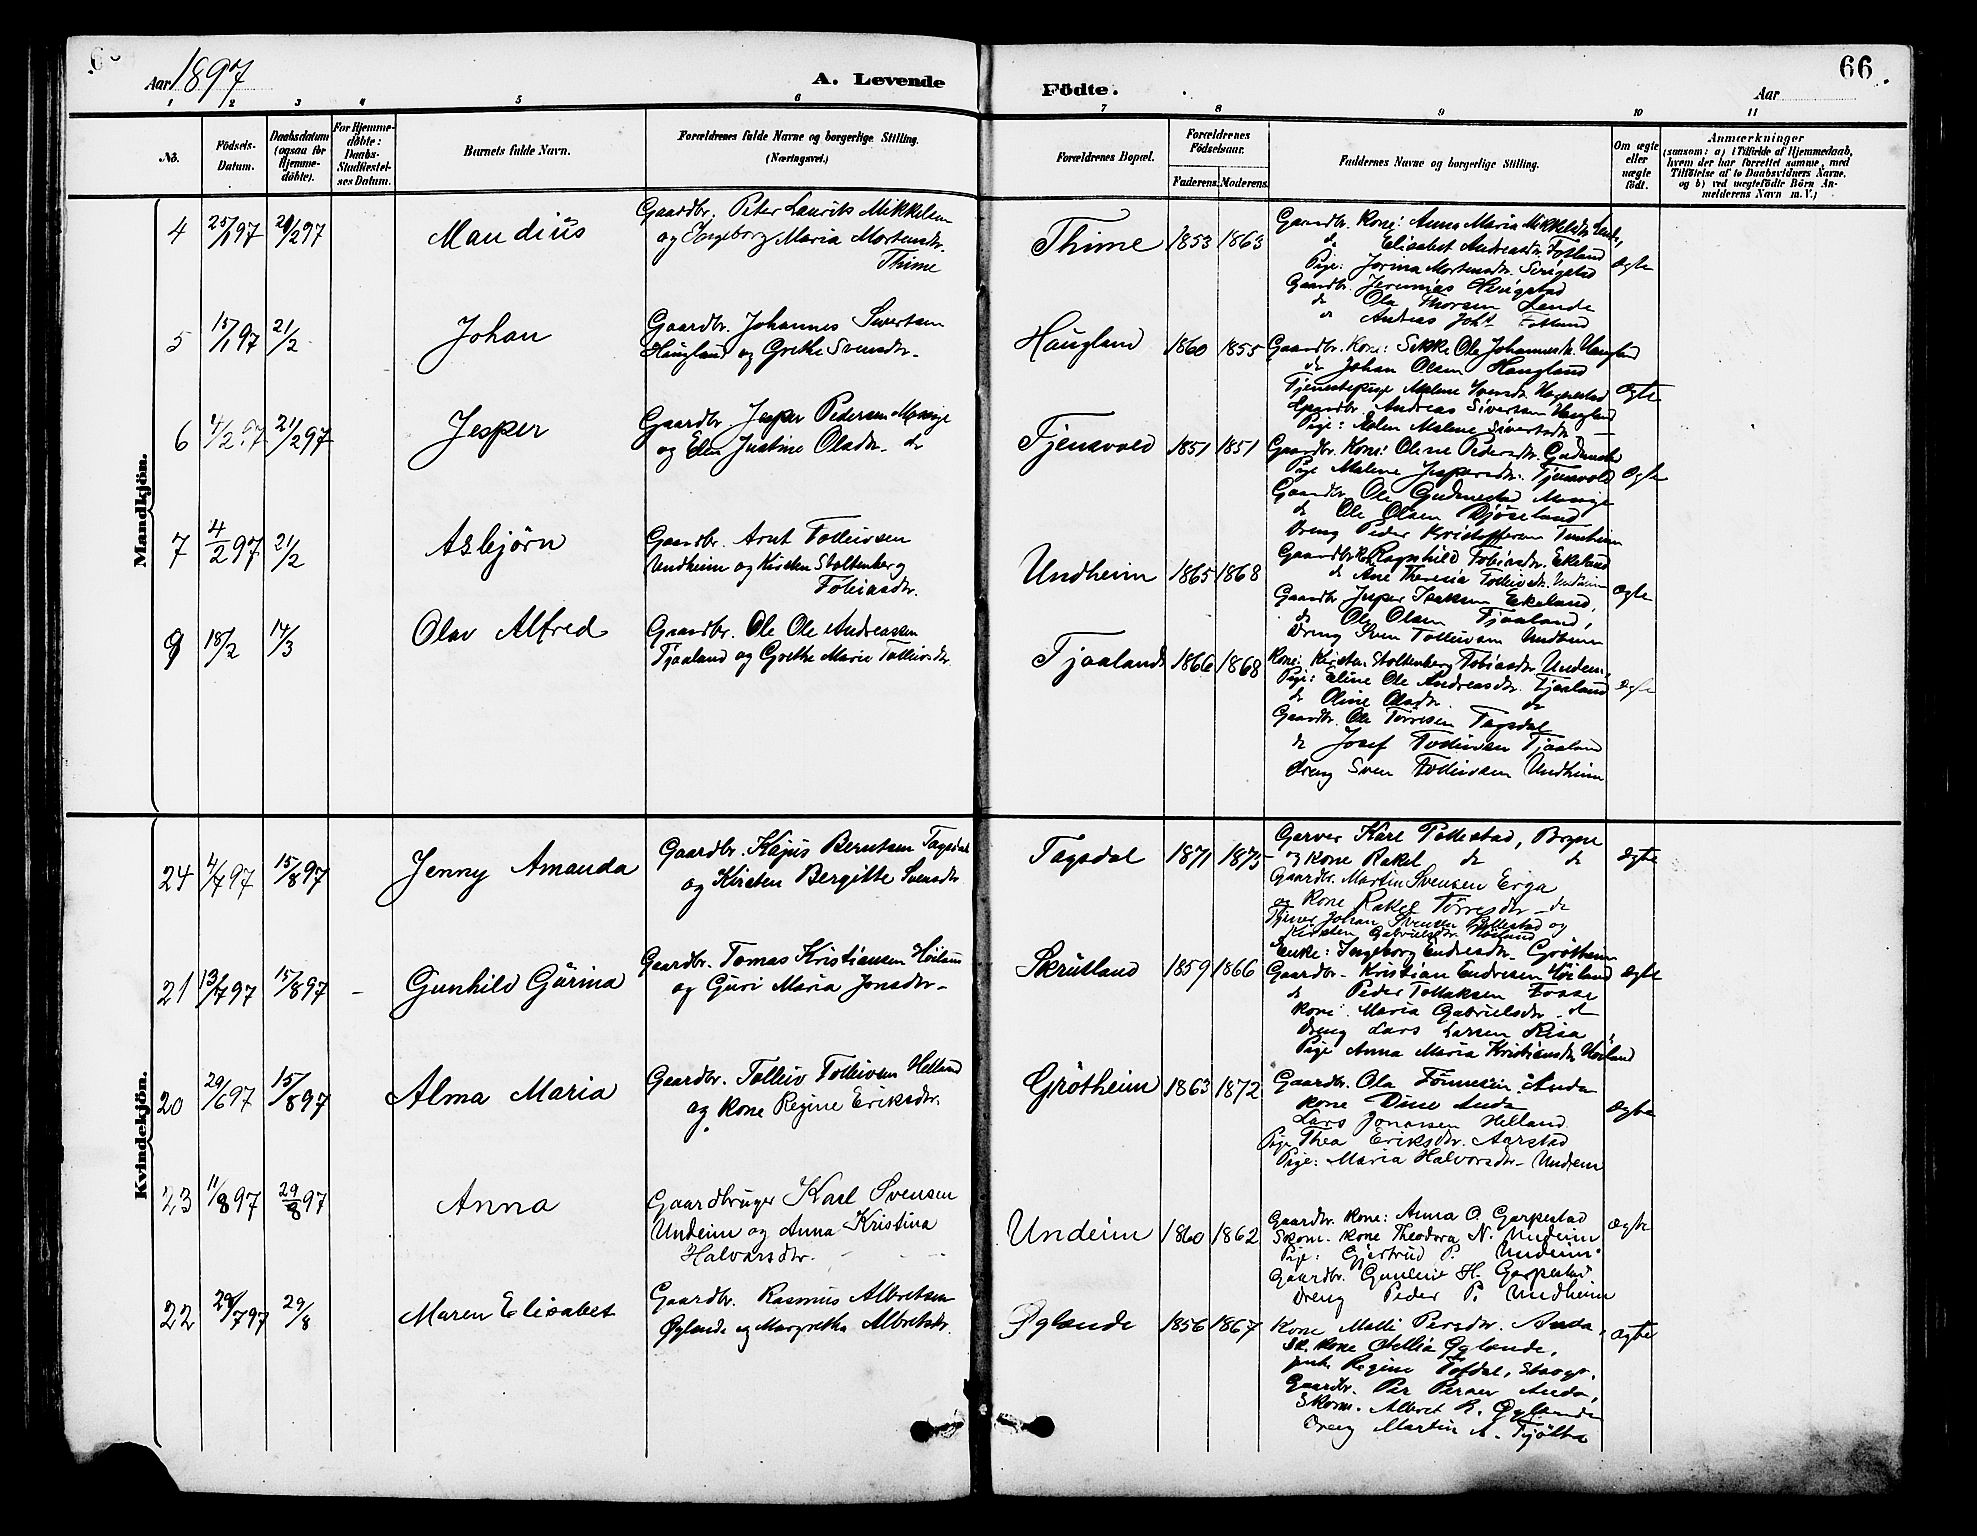 Aar 1897
A. Levende
Födte.
66
Aar
1 2 3 4 5 6 7 8 9 10 11
No.
Födsels-Datum.
Daabsdatum (ogsaa for Hjemme-döbte).
For Hjemme-döbte: Daabs-Stadfæstel-ses Datum.
Barnets fulde Navn.
Forældrenes fulde Navne og borgerlige Stilling.
(Næringsvei.)
Forældrenes Bopæl.
Forældrenes Födselsaar.
Faderens. Moderens.
Faddernes Navne og borgerlige Stilling.
Om ægte eller uægte födt.
Anmærkninger
(saasom: a) i Tilfælde af Hjemmedaab, hvem der har forrettet samme, med Tilföielse af to Daabsvidners Navne, og b) ved uægtefödte Börn Anmelderens Navn m. V.)
Mandkjön.
4 25/1 97 21/2 97 Maudius
Gaardbr. Peter Laurits Mikkelsen
og Ingeborg Maria Mortensdtr.
Thime
Thime 1853 1863
Gaardbr. Kone: Anna Maria Mikkelsdtr
do Elisabet Andreasdtr. Fotland
Pige: Jorina Mortensdtr. Serigstad
Gaardbr. Jeremias Serigstad
do Ola Thorsen Lende
do Andreas Joh. Fotland
ægte
5 15/1 97 21/2 Johan
Gaardbr. Johannes Sivertsen
Haugland og Grethe Svensdtr.
Haugland 1860 1855
Gaardbr. Kone: Sikke Ole Johannesdtr. Haugland
do Johan Olsen Haugland
Tjenestepige Malene Svensdtr
Gaardbr. Andreas Sivertsen Haugland
Pige: Malene Sivertsdtr.
ægte
6 4/2 97 21/2 97 Jesper
Gaardbr. Jesper Pedersen Mauge
og Justine Olsdtr. do
Tjensvold 1851 1851
Gaardbr. Kone: Oline Pedersdtr.
Pige Malene Jespersdtr. Tjensvold
Gaardbr. Ole Gudmestad
do Ole Olsen
Dreng Peder Kristoffersen Tunheim
ægte
7 4/2 97 21/2 Asbjörn
Gaardbr. Arnt Tolleivsen
Undheim og Kirsten Stoltenberg
Tobiasdtr.
Undheim 1865 1868
Gaardbr. K. Ragnhild Tobiasdtr. Ekeland
do Ane Theresia Tolleivsdtr. Undheim
Gaardbr Jesper Isaksen Ekeland,
do Ole Olsen Tjaaland,
Dreng Sven Tolleivsen Undheim
ægte
9 18/2 14/3 Olav Alfred
Gaardbr. Ole Ole Andreassen
Tjaaland og Grethe Marie Tolleivsdtr.
Tjaaland 1866 1868
Kone: Kirsten Stoltenberg Tobiasdtr Undem,
Pige: Eline Ole Andreasdtr. Tjaaland
do Oline Olsdtr. do
Gaardbr. Ole Torresen Tagsdal
do Josef Tolleivsen Tjaaland
Dreng Sven Tolleivsen Undheim
ægte
Kvindekjön.
24 4/7 97 15/8 97 Jenny Amanda
Gaardbr. Kajus Berntsen Tagsdal
og Kirsten Bergitte Svensdtr
Tagsdal 1871 1875
Garver Karl Pollestad, Bryne
og Kone Rakel do do
Gaardbr. Martin Svensen Erga
og Kone Rakel Torresdtr - do
Johan Svensen Pollestad og
Kirsten Gabrielsdtr Höiland
ægte
21 13/7 97 15/8 97 - Gunhild Gurina
Gaardbr. Tomas Kristiansen Höiland
og Guri Maria Jonsdtr -
Skrutland 1859 1866
Enke: Ingeborg Endresdtr - Grötheim
Gaardbr - Kristian Endresen Höiland
do Peder Tollaksen Fosse
Kone: Maria Gabrielsdtr - do
Dreng Lars Larsen Risa
Pige Anna Maria Kristiansdtr Höiland
ægte
20 29/6 97 15/8 97 Alma Maria
Gaardbr. Tolleiv Tolleivsen Helland
og Kone Regine Eriksdtr.
Grötheim 1863 1872
Gaardbr. Ola Tönnesen Anda
Kone Dine Anda
Lars Jonassen Helland
Pige Thea Eriksdtr. Aarstad
Pige: Maria Halvorsdtr - Undem
ægte
23 11/8 97 29/8 97 Anna
Gaardbruger Karl Svensen
Undeim og Anna Kristina
Halvorsdtr.
Undeim 1860 1862
Gaardbr. Kone: Anna O. Garpestad
Skom. Kone Theodora N. Undeim
Pige: Gjertrud P. Undeim
Gaardbr. H. Garpestad
Dreng Peder P. Undheim
ægte
22 29/7 97 29/8 Maren Elisabet
Gaardbr. Rasmus Albretsen
Øglænde og Margretha Albretsdtr.
Øglænde 1856 1867
Kone Malli Persdtr. Anda,
Sk. Kone Øglænde,
Regine Tofdal,
Gaardbr. Per Anda,
Skom. Albret R. Øglænde
Dreng Martin A. Tjötta
ægte